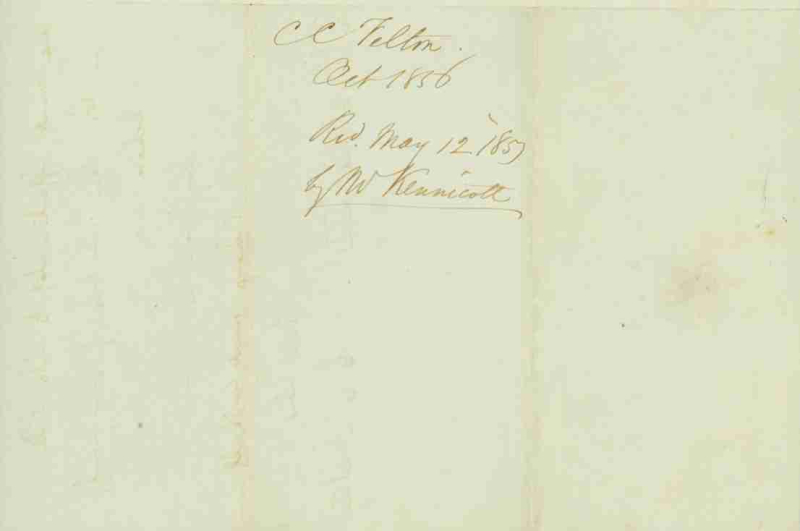 C C Felton.
Oct 1856
Recd. May 12 1857
by Mr Kennicott